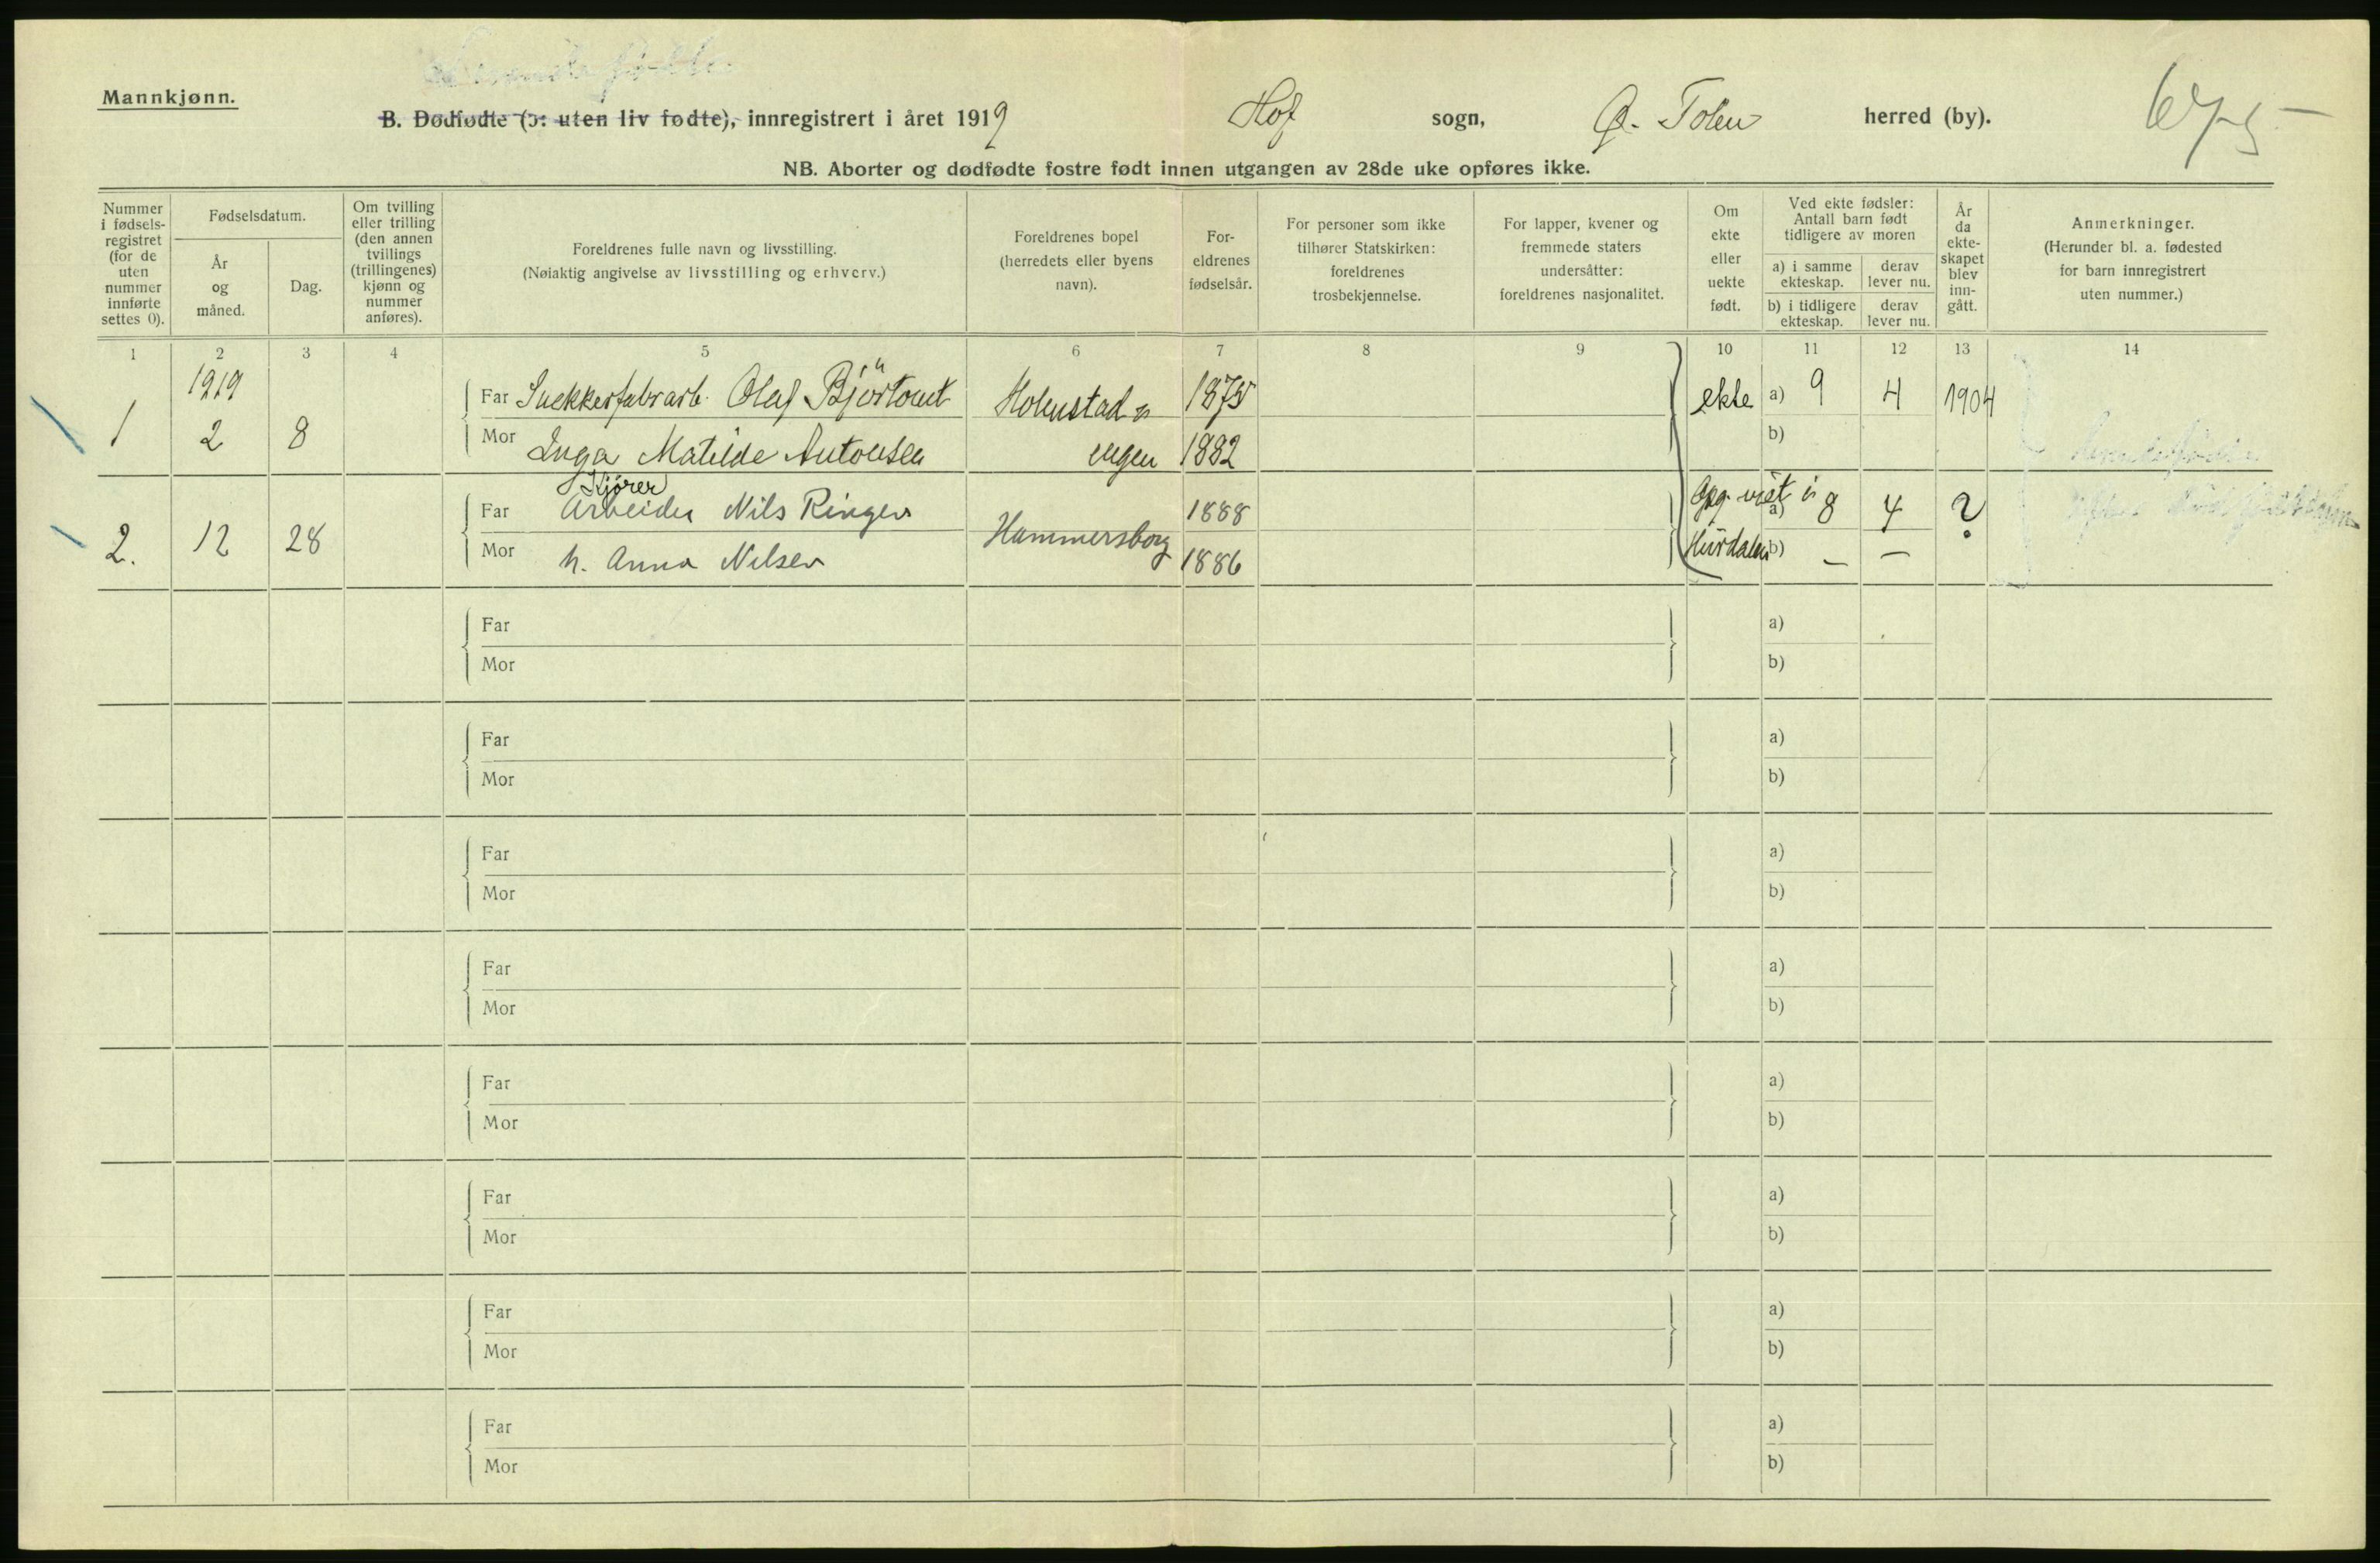 Mannkjønn.
B. Dødfødte (ɔ: uten liv fødte), innregistrert i året 1919 Hof sogn, Ø. Toten herred (by).
NB. Aborter og dødfødte fostre født innen utgangen av 28de uke opføres ikke.
Nummer i fødsels-registret (for de uten nummer innførte settes 0).
Fødselsdatum.
År og måned.
Dag.
Om tvilling eller trilling (den annen tvillings (trillingenes) kjønn og nummer anføres).
Foreldrenes fulle navn og livsstilling.
(Nøiaktig angivelse av livsstilling og erhverv.)
Foreldrenes bopel (herredets eller byens navn).
For-eldrenes fødselsår.
For personer som ikke tilhører Statskirken: foreldrenes trosbekjennelse.
For lapper, kvener og fremmede staters undersåtter: foreldrenes nasjonalitet.
Om ekte eller uekte født.
Ved ekte fødsler: Antall barn født tidligere av moren
a) i samme ekteskap.
derav lever nu.
b) i tidligere ekteskap.
derav lever nu.
År da ekte-skapet blev inn-gått.
Anmerkninger.
(Herunder bl. a. fødested for barn innregistrert uten nummer.)
1 2 3 4 5 6 7 8 9 10 11 12 13 14
1919
1 2 8 Far Olaf 1875 ekte a) 9 4 1904
Mor Inga Matilde Antonsen engen 1882 b)
Kjører
2. 12 28 Far Arbeider Nils Ringen Hammersborg 1888 Opg. a) 8 4 ?
Mor h. Anna Nilsen 1886 Hurdalen b) – –
Far a)
Mor b)
Far a)
Mor b)
Far a)
Mor b)
Far a)
Mor b)
Far a)
Mor b)
Far a)
Mor b)
Far a)
Mor b)
Far a)
Mor b)